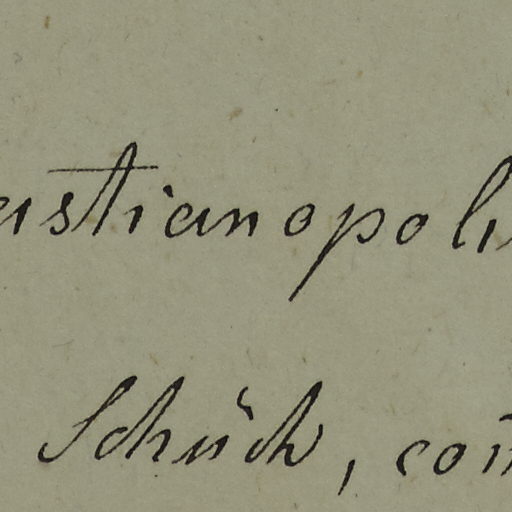 istianopoli
Schück, com